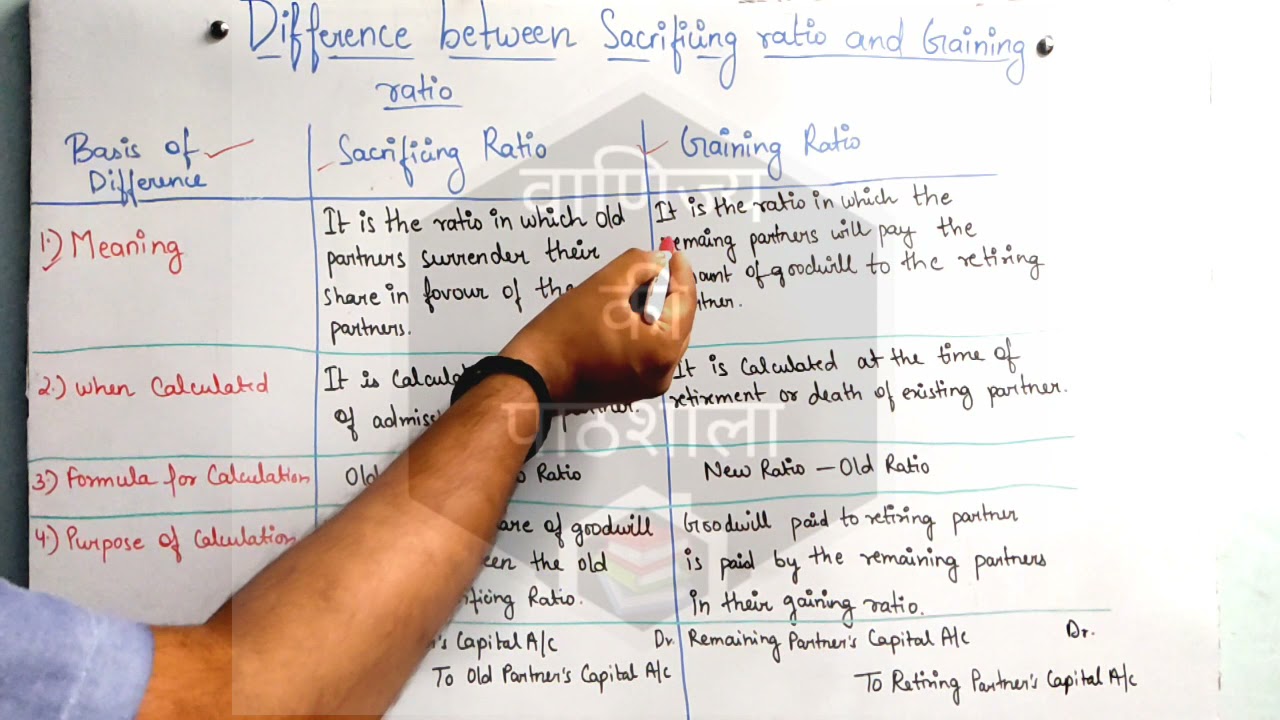 Difference between Sacrificing ratio and Gaining
ratio
Basis of
Difference
Sacrificing Ratio
Gaining Ratio
1.) Meaning
It is the ratio in which old
partners surrender their
share in favour of the
partners.
It is the ratio in which the
partners will pay the
of goodwill to the retiring
2.) When Calculated
It is
of
It is Calculated at the time of
retirement or death of existing partner.
3.) Formula for Calculation
Old Ratio
New Ratio – Old Ratio
4.) Purpose of Calculation
of goodwill
the old
Ratio.
Goodwill paid to retiring partner
is paid by the remaining partners
in their gaining ratio.
Capital A/c Dr.
To Old Partner's Capital A/c
Remaining Partner's Capital A/c Dr.
To Retiring Partner's Capital A/c
वाणिज्य
की
पाठशाला